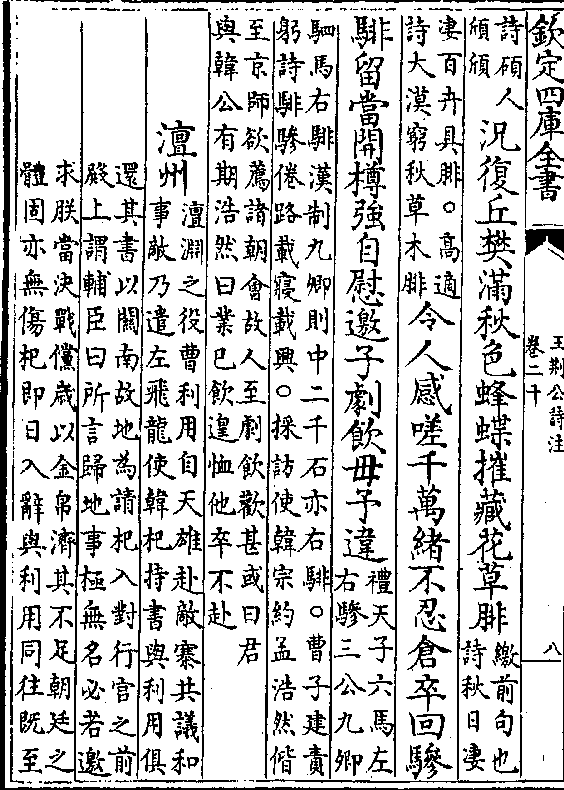 欽定四庫全書
王荆公詩注
卷二十
八
詩碩人
頎頎
況復丘樊滿秋色蜂蝶摧藏花草腓
繳前句也
詩秋日淒
淒百卉具腓。高適
詩大漠窮秋草木腓
令人感嗟千萬緒不忍倉卒回驂
騑留當開樽強自慰邀子劇飲毋予違
禮天子六馬左
右驂三公九卿
駟馬右騑漢制九卿則中二千石亦右騑。曹子建責
躬詩騑驂倦路載寢載興。採訪使韓宗約孟浩然偕
至京師欲薦諸朝會故人至劇飲歡甚或曰君
與韓公有期浩然曰業已飲遑恤他卒不赴
澶州
澶淵之役曹利用自天雄赴敵寨共議和
事敵乃遣左飛龍使韓杞持書與利用俱
還其書以關南故地為請杞入對行宮之前
殿上謂輔臣曰所言歸地事極無名必若邀
求朕當決戰儻歲以金帛濟其不足朝廷之
體固亦無傷杞即日入辭與利用同往既至